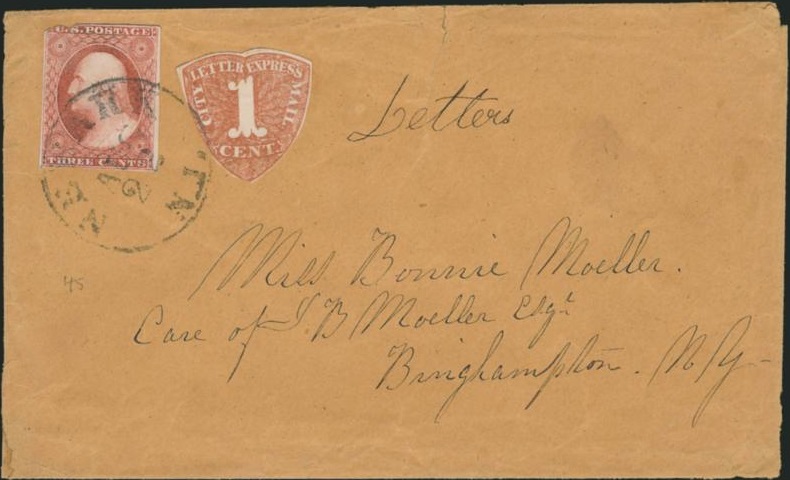 U.S. POSTAGE
THREE CENTS
CITY LETTER EXPRESS MAIL
1
CENT.
NEWARK N.J.
Letters
45
Miss Bonnie Moeller.
Care of J B Moeller Esqr
Binghampton. N Y-